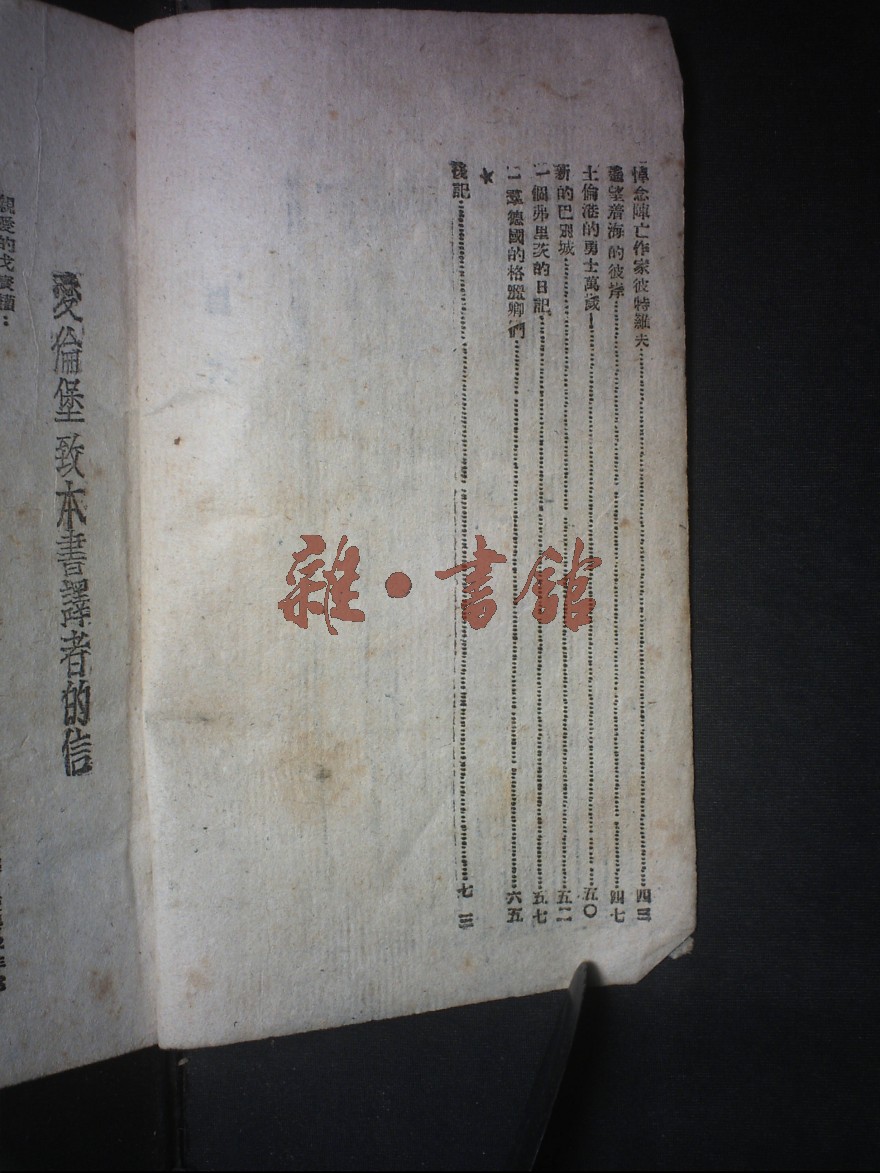 悼念陣亡作家彼特羅夫 四三
遙望着海的彼岸 四七
土倫港的勇士萬歲！ 五〇
新的巴別城 五二
一個弗里茨的日記 五七
一羣德國的格麗卿們 六五
★
後記 七三
愛倫堡致本書譯者的信
親愛的戈寶權：
雜·書館